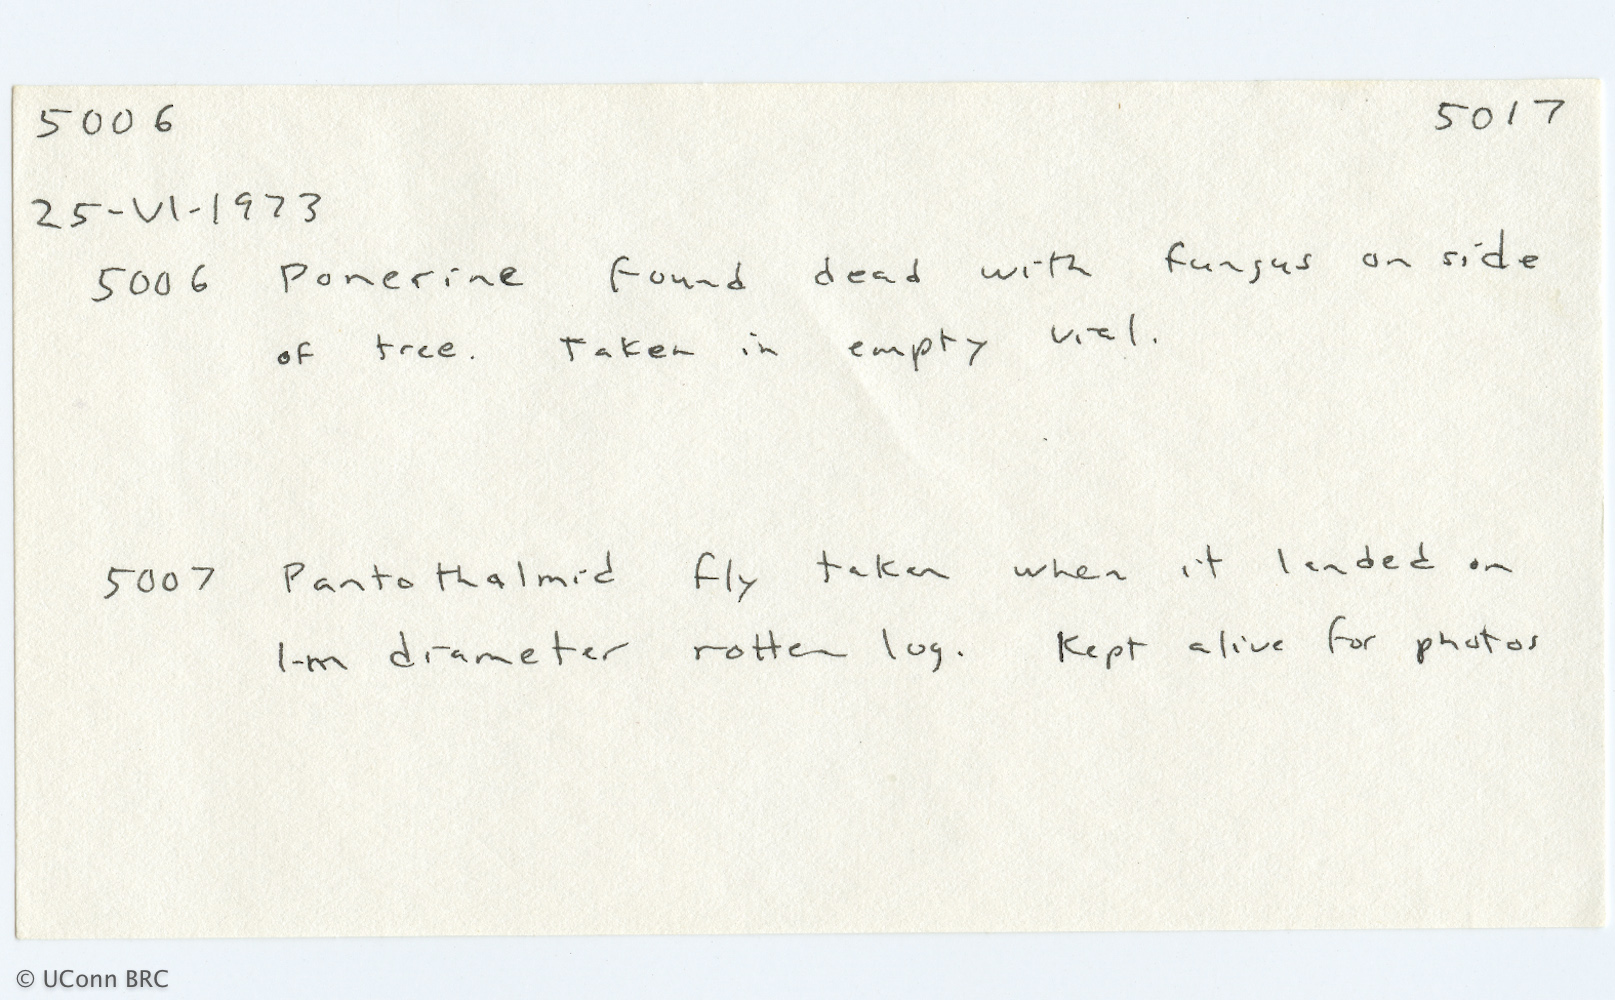 5006 5017
25-VI-1973
5006 Ponerine found dead with fungus on side
of tree. Taken in empty vial.
5007 Pantothalmid fly taken when it landed on
1-m diameter rotten log. Kept alive for photos
© UConn BRC